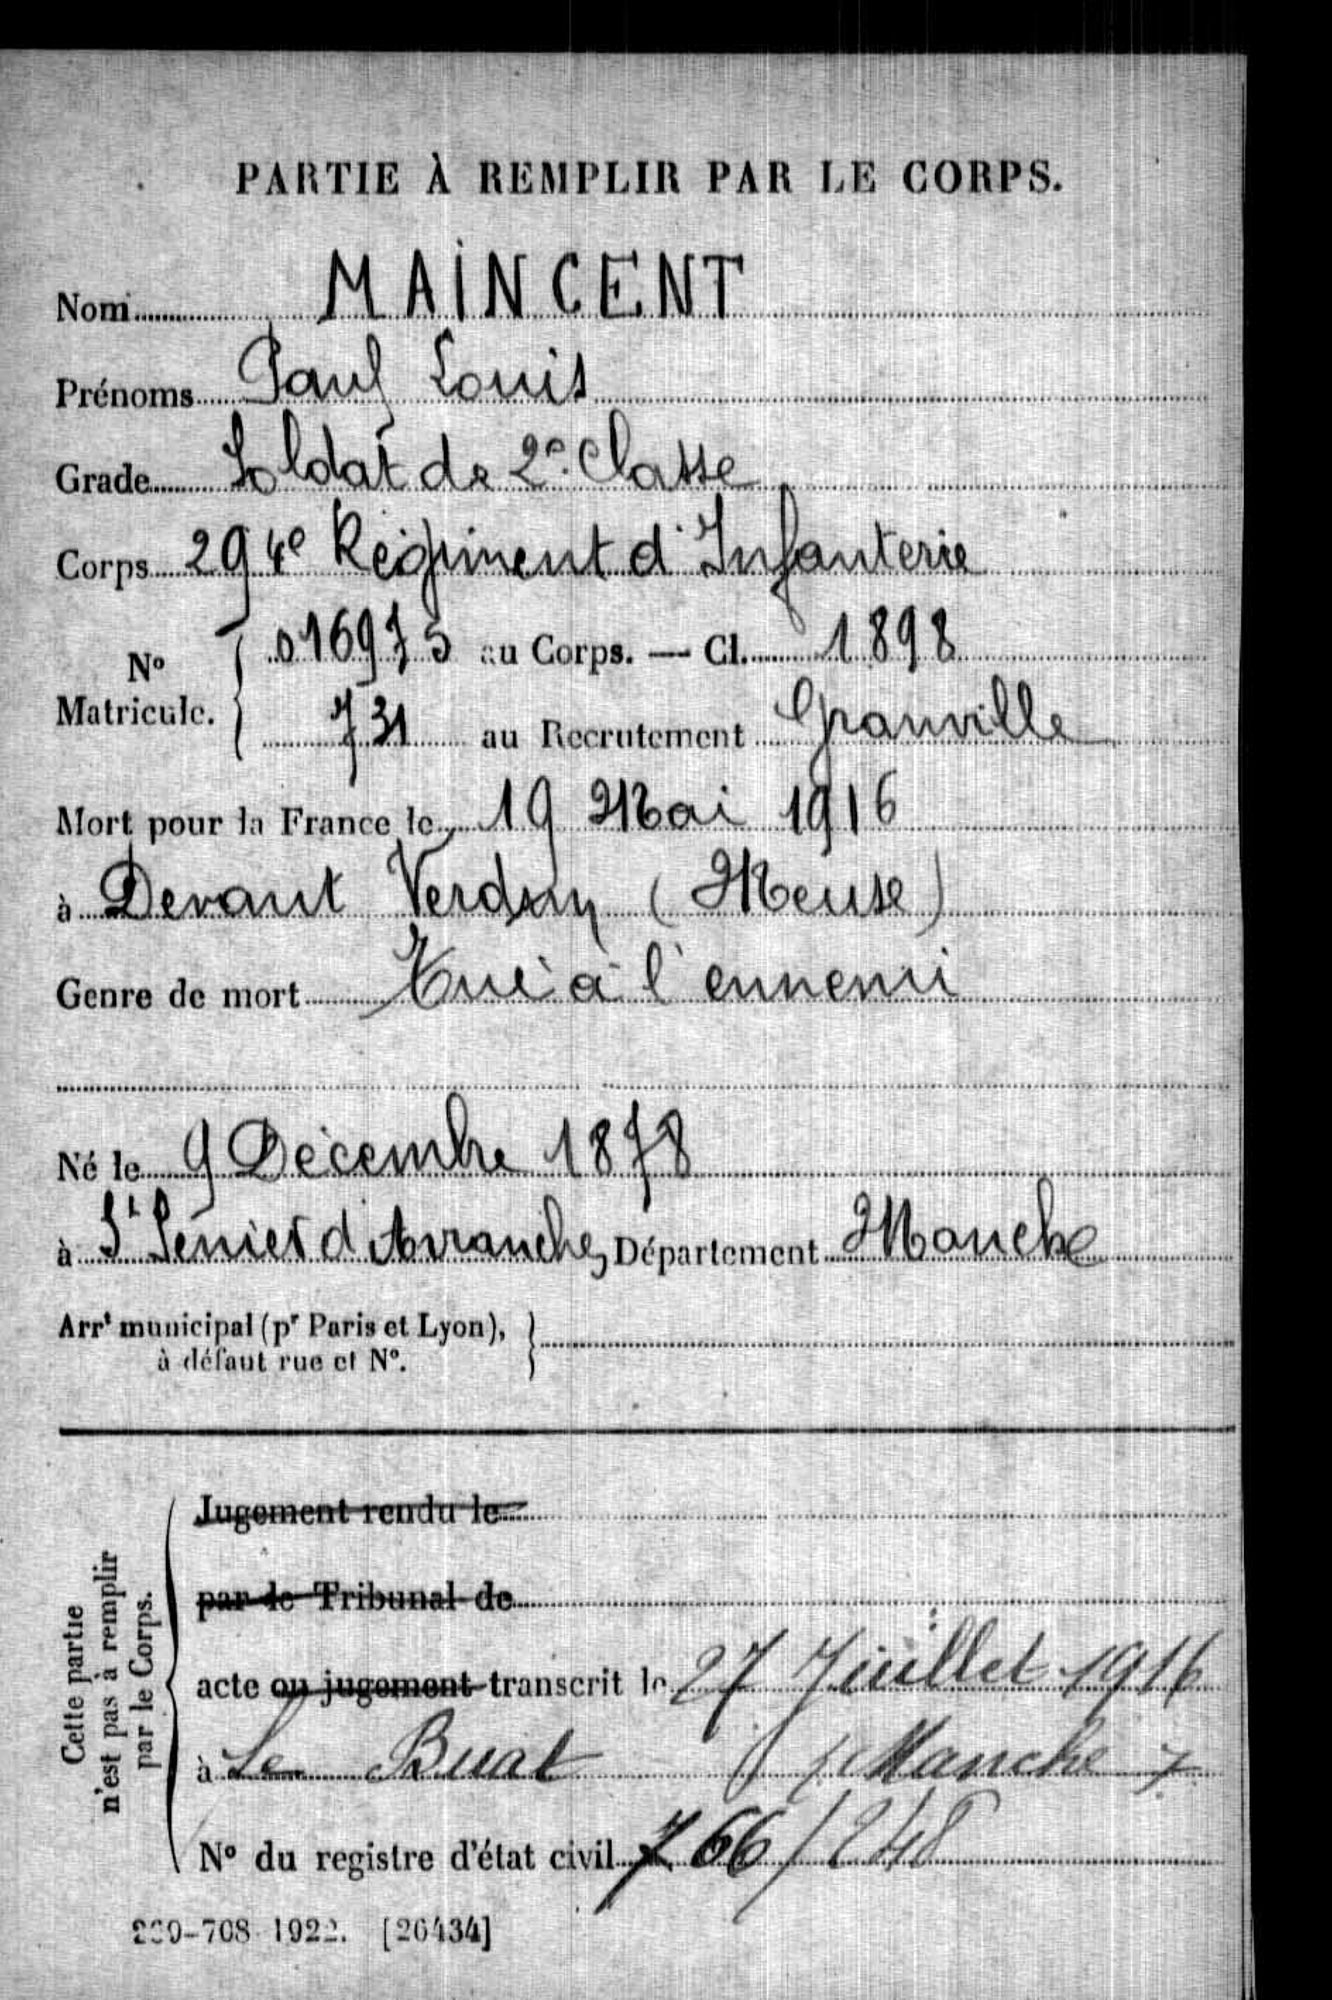 PARTIE À REMPLIR PAR LE CORPS.
Nom MAINCENT
Prénoms Paul Louis
Grade Soldat de 2e Classe
Corps 294e Régiment d'Infanterie
N° Matricule. 016975 au Corps. — Cl. 1898
731 au Recrutement Granville
Mort pour la France le 19 Mai 1916
à Devant Verdun (Meuse)
Genre de mort Tué à l'ennemi
Né le 9 Décembre 1878
à St Senier d'Avranches Département Manche
Arrt municipal (pr Paris et Lyon),
à défaut rue et N°.
Cette partie
n'est pas à remplir
par le Corps.
Jugement rendu le
par le Tribunal de
acte ou jugement transcrit le 27 Juillet 1916
à Le Buat (Manche)
N° du registre d'état civil 766/248
-708 1922. [26434]